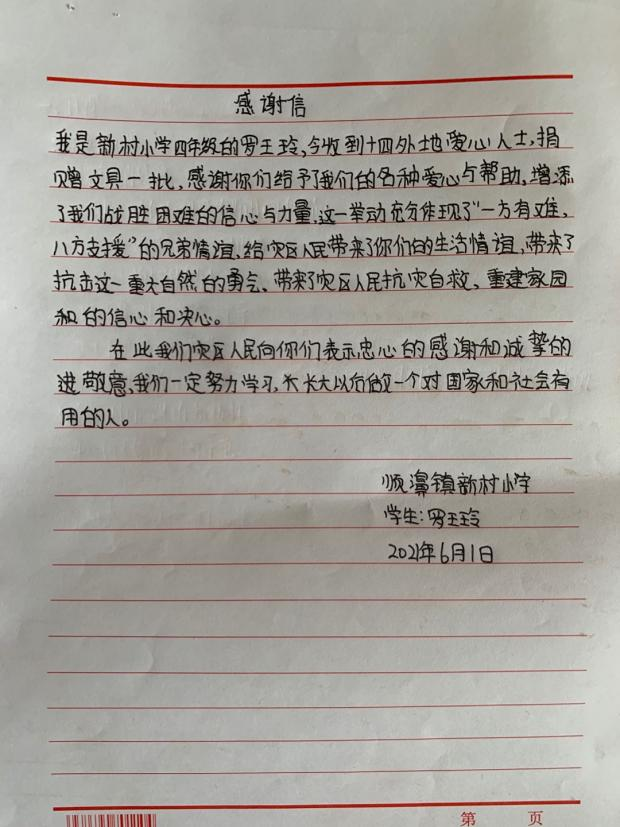 感谢信
我是新村小学四年级的罗王玲,今收到十四外地爱心人士,捐
赠文具一批,感谢你们给予了我们的各种爱心与帮助,增添
了我们战胜困难的信心与力量.这一举动充分体现了“一方有难,
八方支援”的兄弟情谊,给灾区人民带来了你们的生活情谊,带来了
抗击这一重大自然的勇气、带来了灾区人民抗灾自救、重建家园
和的信心和决心。
在此我们灾区人民向你们表示忠心的感谢和诚挚的
进敬意,我们一定努力学习,长长大以后做一个对国家和社会有
用的人。
顺濞镇新村小学
学生:罗王玲
2021年6月1日
第 页